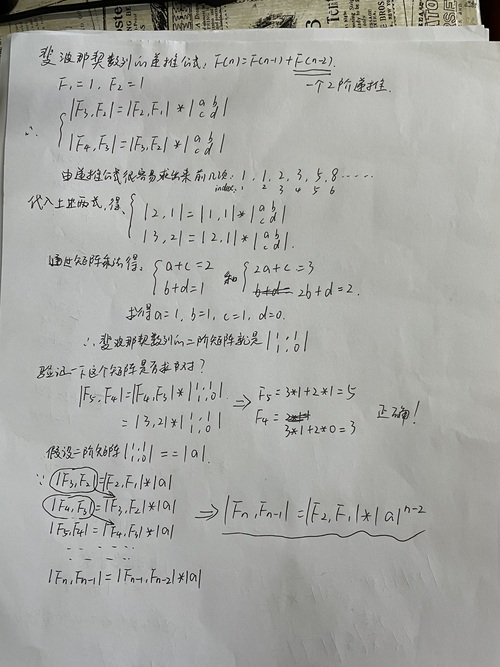 斐波那契数列的递推公式: F(n)=F(n-1)+F(n-2).
F₁=1, F₂=1 一个2阶递推.
∴ { |F₃,F₂|=|F₂,F₁|*|a b c d|
|F₄,F₃|=|F₃,F₂|*|a b c d|
由递推公式很容易求出来前几项: 1, 1, 2, 3, 5, 8 ······
index, 1 2 3 4 5 6
代入上述两式,得, { |2,1|=|1,1|*|a b c d|
|3,2|=|2,1|*|a b c d|.
通过矩阵乘法得, { a+c=2 b+d=1 和 { 2a+c=3 2b+d=2.
求得 a=1, b=1, c=1, d=0.
∴ 斐波那契数列的二阶矩阵就是 |1,1 1,0|
验证一下这个矩阵是否找的对?
|F₅,F₄|=|F₄,F₃|*|1,1 1,0| ⇒ F₅=3*1+2*1=5
=|3,2|*|1,1 1,0| F₄=3*1+2*0=3 正确!
假设二阶矩阵|1,1 1,0|==|a|.
∵ |F₃,F₂|=|F₂,F₁|*|a|
|F₄,F₃|=|F₃,F₂|*|a| ⇒ |Fn,Fn-1|=|F₂,F₁|*|a|ⁿ⁻²
|F₅,F₄|=|F₄,F₃|*|a|
|Fn,Fn-1|=|Fn-1,Fn-2|*|a|